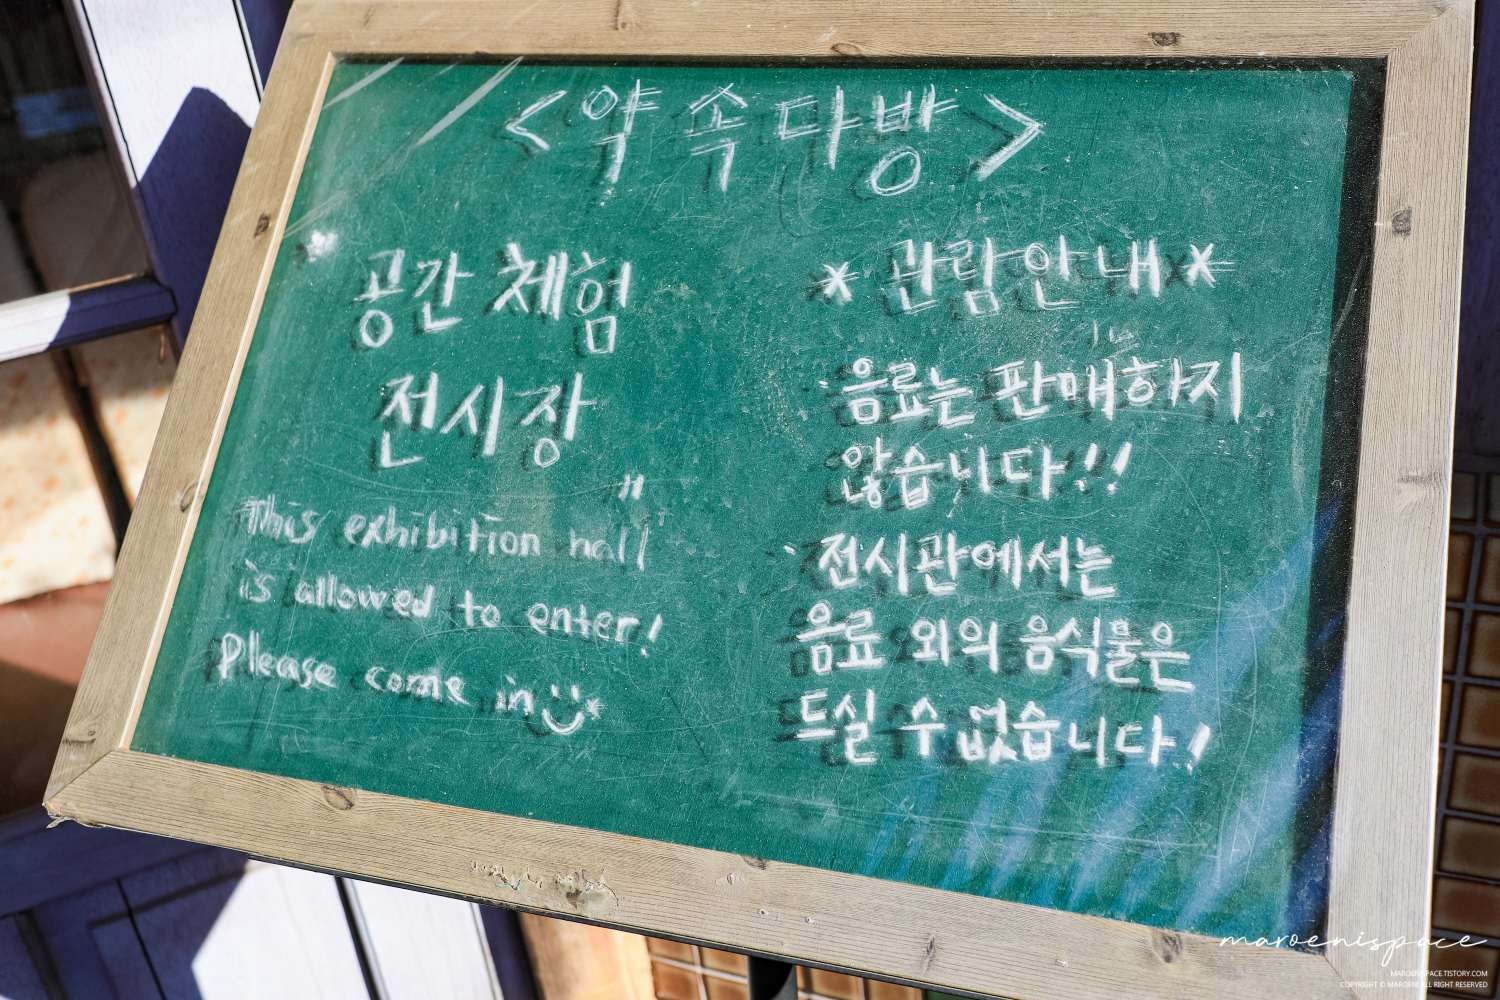 <약속다방>
공간 체험
전시장
"
This exhibition hall
is allowed to enter!
Please come in
* 관람안내 *
· 음료는 판매하지
않습니다!!
· 전시관에서는
음료 외의 음식물은
드실 수 없습니다!
maroenispace
MAROENISPACE.TISTORY.COM
COPYRIGHT © MAROENI ALL RIGHT RESERVED